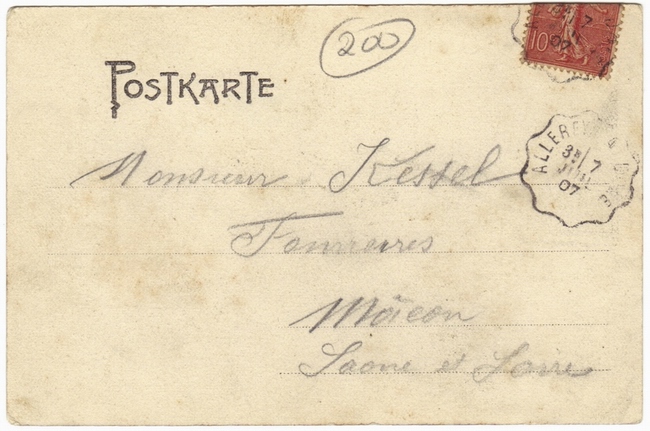 200
10
7
07
POSTKARTE
ALLEREY
3E 7
07
Monsieur Kessel
Mâcon
Saone et Loire